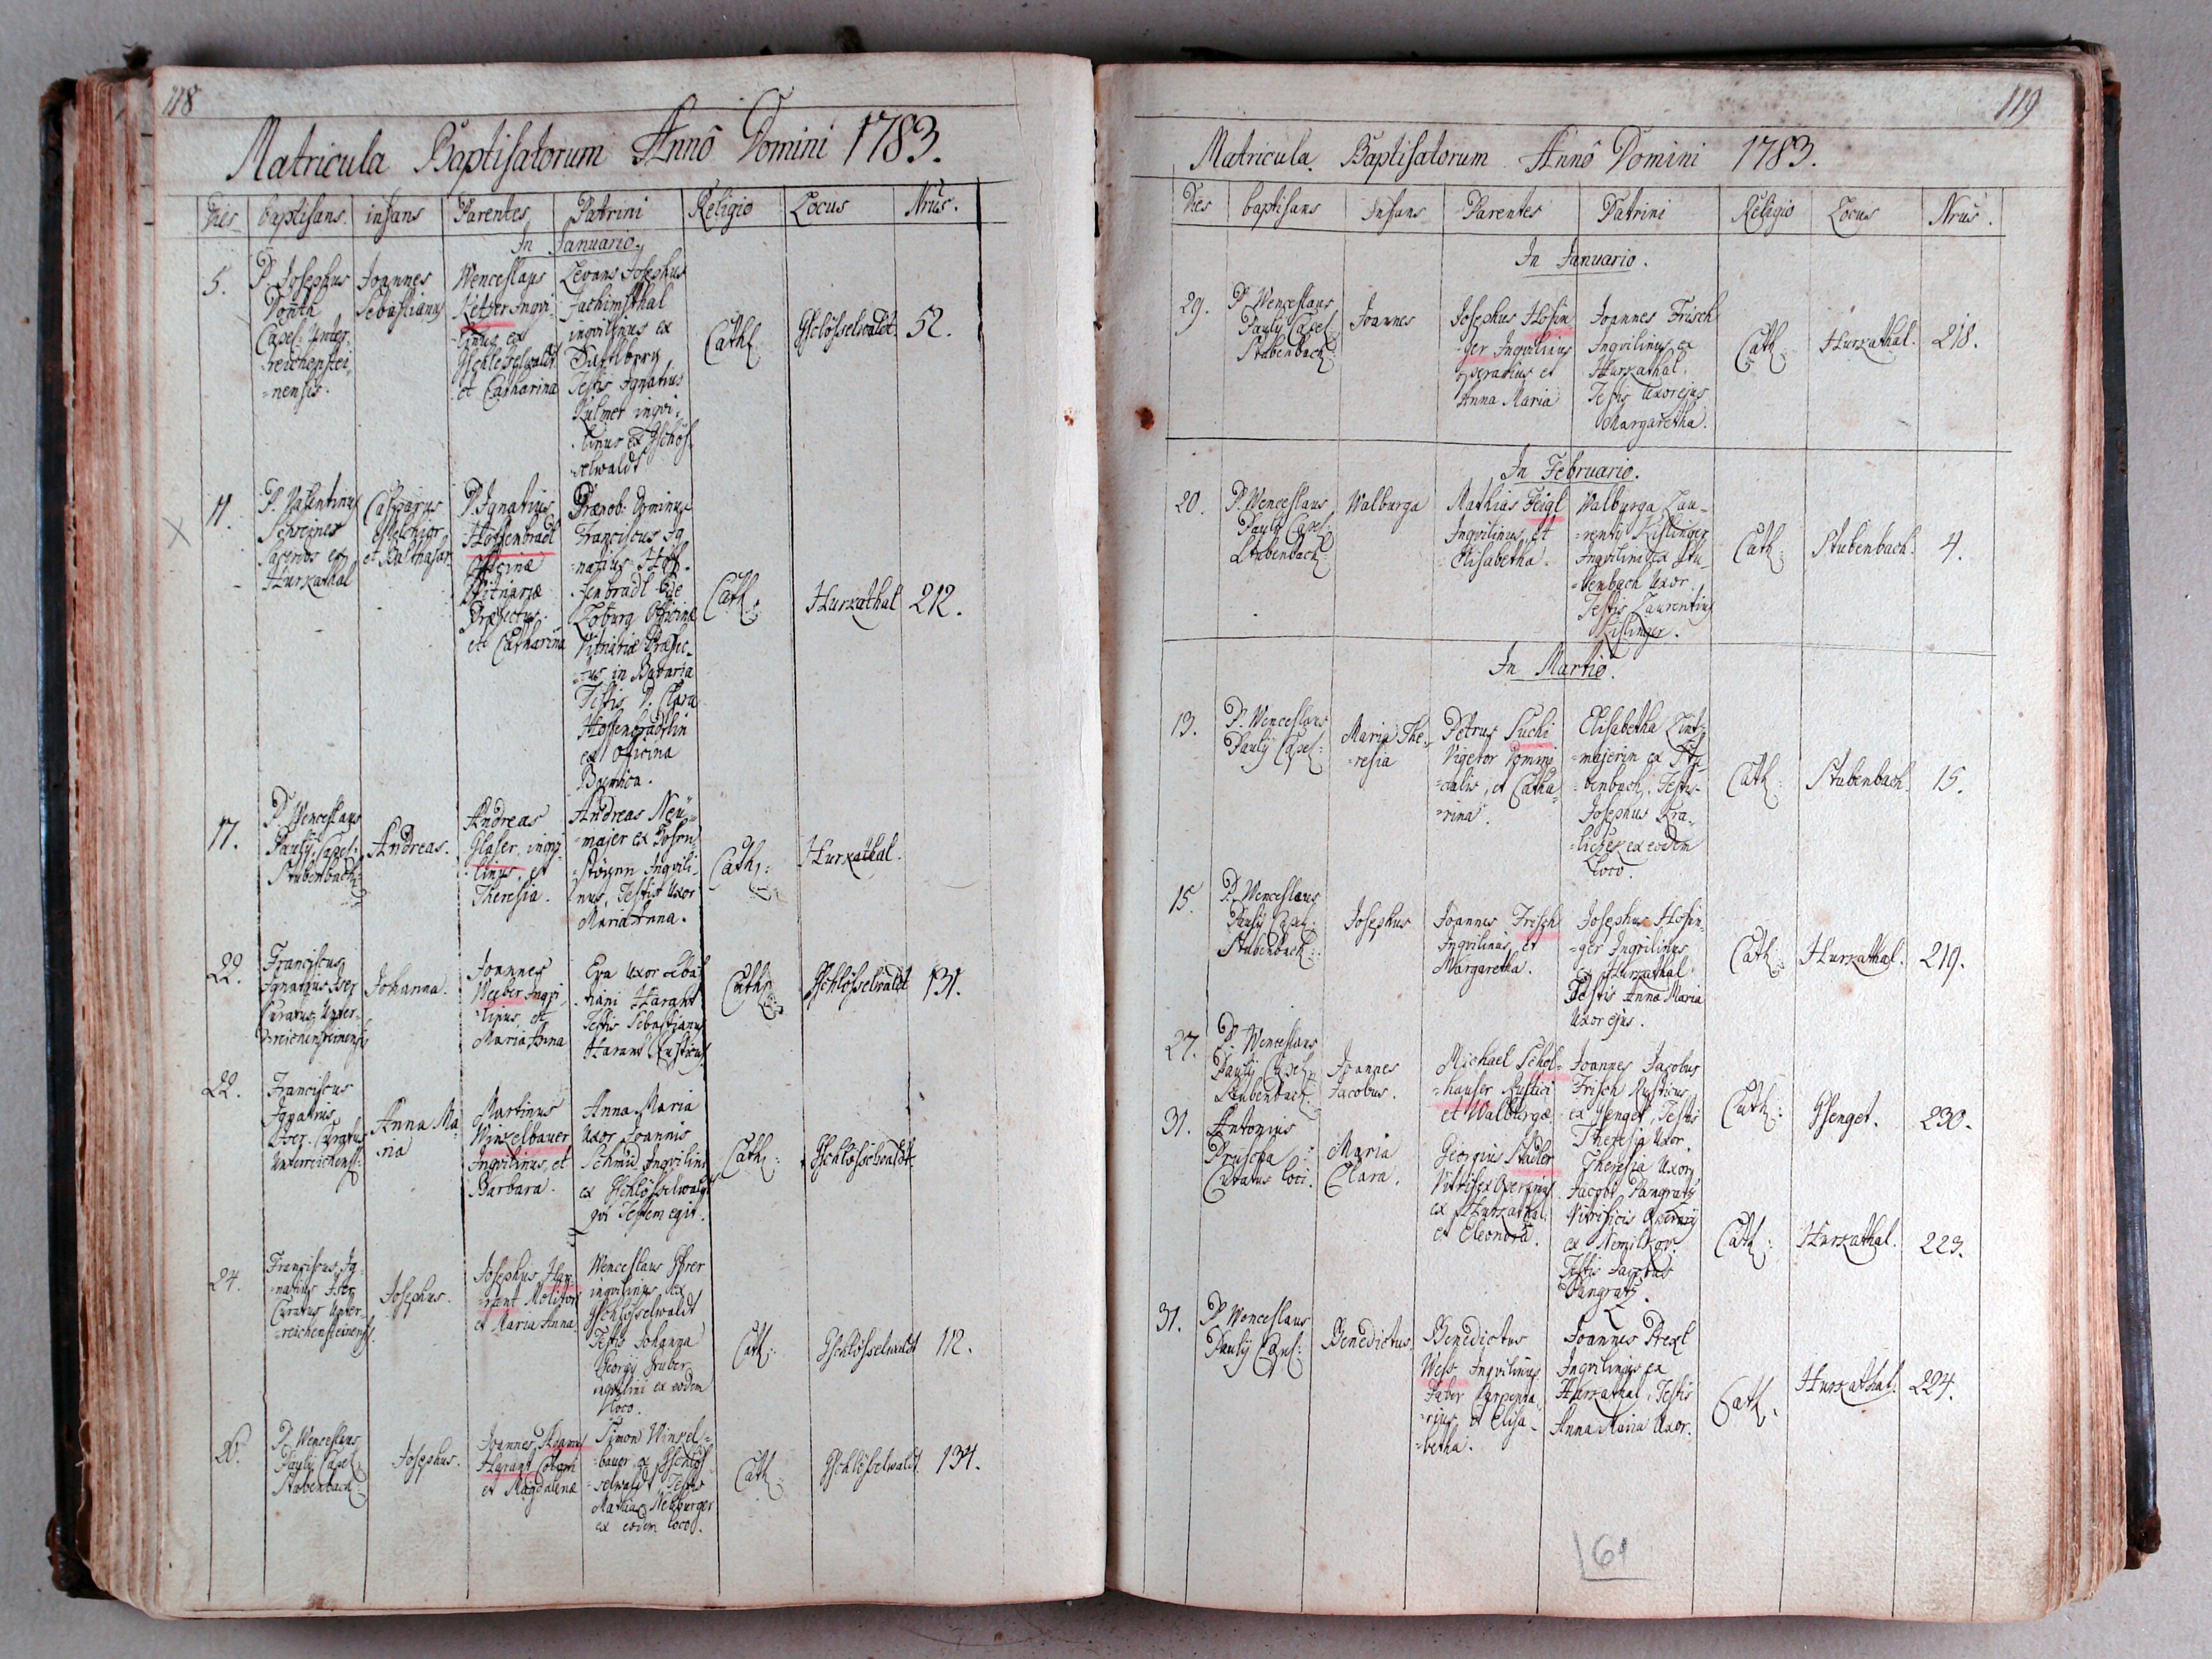 118
Matricula Baptisatorum Annô Domini 1783.
Dies baptisans. infans Parentes Patrini Religio Locus Nrus.
In Januario.
5. P. Josephus
Capel: Unter-
reichenstei-
=nensis.
Joannes
Sebastianus
Wenceslaus
inqvi-
linus ex
et Catharina
Levans Josephus
Jachimsthal
inqvilinus ex
Testis Ignatius
inqvi-
linus ex Gschlös-
selwaldt
Cath: Gschlösselwaldt 52.
11. P. Valentinus
Schreiner
sacerdos ex
Hurkathal
Casparus
Melchior
et Balthasar
P. Ignatius
Haffenbradl
officinæ
Vitriariæ
Præfectus
et Catharina
Prænob: Dominus
Franciscus Ig
=natius Haf-
fenbradl de
Officinæ
Vitriariæ Præfec-
=tus in Bavaria
Testis D. Clara
ex Officina
Boemica.
Cath: Hurkathal 212.
17. P. Wenceslaus
Paulÿ Capel:
Stubenbach:
Andreas.
Andreas
Glaser inqvi-
linus, et
Theresia.
Andreas Neü-
=majer ex
Inqvili-
nus, Testis Uxor
Maria Anna.
Cath: Hurkathal.
22. Franciscus
Ignatius
Curatus Unter-
reichensteinensis
Johanna.
Joannes
Weeber Inqvi-
linus, et
Maria Anna
Eva Uxor Seba-
stiani Harant
Testis Sebastianus
Harant Rusticus
Cath: Gschlösselwaldt 131.
22. Franciscus
Ignatius
Curatus
Unterreichenst:
Anna Ma-
ria
Martinus
Winzelbauer
Inqvilinus, et
Barbara.
Anna Maria
Uxor Joannis
Schmid Inqvilini
ex Gschlösselwaldt
qvi Testem egit.
Cath: Gschlösselwaldt
24. Franciscus Ig-
=natius
Curatus Unter-
=reichensteinensis
Josephus.
Josephus Har-
rant Molitor
et Maria Anna
Wenceslaus
inqvilinus ex
Gschlösselwaldt
Testis Johanna
Georgÿ Gruber
inqvilini ex eodem
loco.
Cath: Gschlösselwaldt 112.
26. P. Wenceslaus
Paulÿ Capel:
Stubenbach:
Josephus.
Joannes Adamus
Harant
et Magdalenæ
Simon Winzel-
=bauer ex Gschlös-
selwaldt, Testis
Mathias Neüburger
ex eodem loco.
Cath: Gschlösselwaldt 134.
119
Matricula Baptisatorum Annô Domini 1783.
Dies baptisans Infans Parentes Patrini Religio Locus Nrus.
In Januario.
29. P. Wenceslaus
Paulÿ Capel:
Stubenbach:
Joannes
Josephus Hosin
=ger Inqvilinus
operarius et
Anna Maria
Joannes Frisch
Inqvilinus ex
Hurkathal.
Testis Uxor ejus
Margaretha.
Cath: Hurkathal. 218.
In Februario.
20. P. Wenceslaus
Paulÿ Capel:
Stubenbach:
Walburga
Mathias Feigl
Inqvilinus, et
Elisabetha.
Walburga Lau-
=rentÿ Kislinger
Inqvilini ex Stu-
=benbach Uxor.
Testis Laurentius
Kislinger.
Cath: Stubenbach. 4.
In Martio.
13. P. Wenceslaus
Paulÿ Capel:
Maria The-
=resia
Petrus Suchi
Vigetor Domini
=calis, et Catha-
=rina.
Elisabetha
=majerin ex Stu-
=benbach, Testis
Josephus Kra-
=liczek ex eodem
Loco.
Cath: Stubenbach. 15.
15. P. Wenceslaus
Paulÿ Capel:
Stubenbach:
Josephus
Joannes Frisch
Inqvilinus, et
Margaretha.
Josephus Hosin-
=ger Inqvilinus
ex Hurkathal
Testis Anna Maria
Uxor ejus.
Cath: Hurkathal. 219.
27. P. Wenceslaus
Paulÿ Capel:
Stubenbach:
Joannes
Jacobus.
Michael Schol-
=hauser Rustici
et Walburgæ
Joannes Jacobus
Frisch Rusticus
ex Gsenget, Testis
Theresia Uxor
Cath: Gsenget. 230.
31. Antonius
Pruscha
Curatus loci.
Maria
Clara.
Georgius Stadler
Vitrifex
ex Hurkathal
et Eleonora.
Theresia Uxor
Jacobi Pangratz
Vitrificis
ex Nemilkov.
Testis Jacobus
Pangratz.
Cath: Hurkathal. 223.
31. P. Wenceslaus
Paulÿ Capel:
Benedictus
Benedictus
Wess Inqvilinus
Faber Carpenta-
=rius et Elisa-
=betha.
Joannes
Inqvilinus ex
Hurkathal, Testis
Anna Maria Uxor.
Cath: Hurkathal. 224.
61